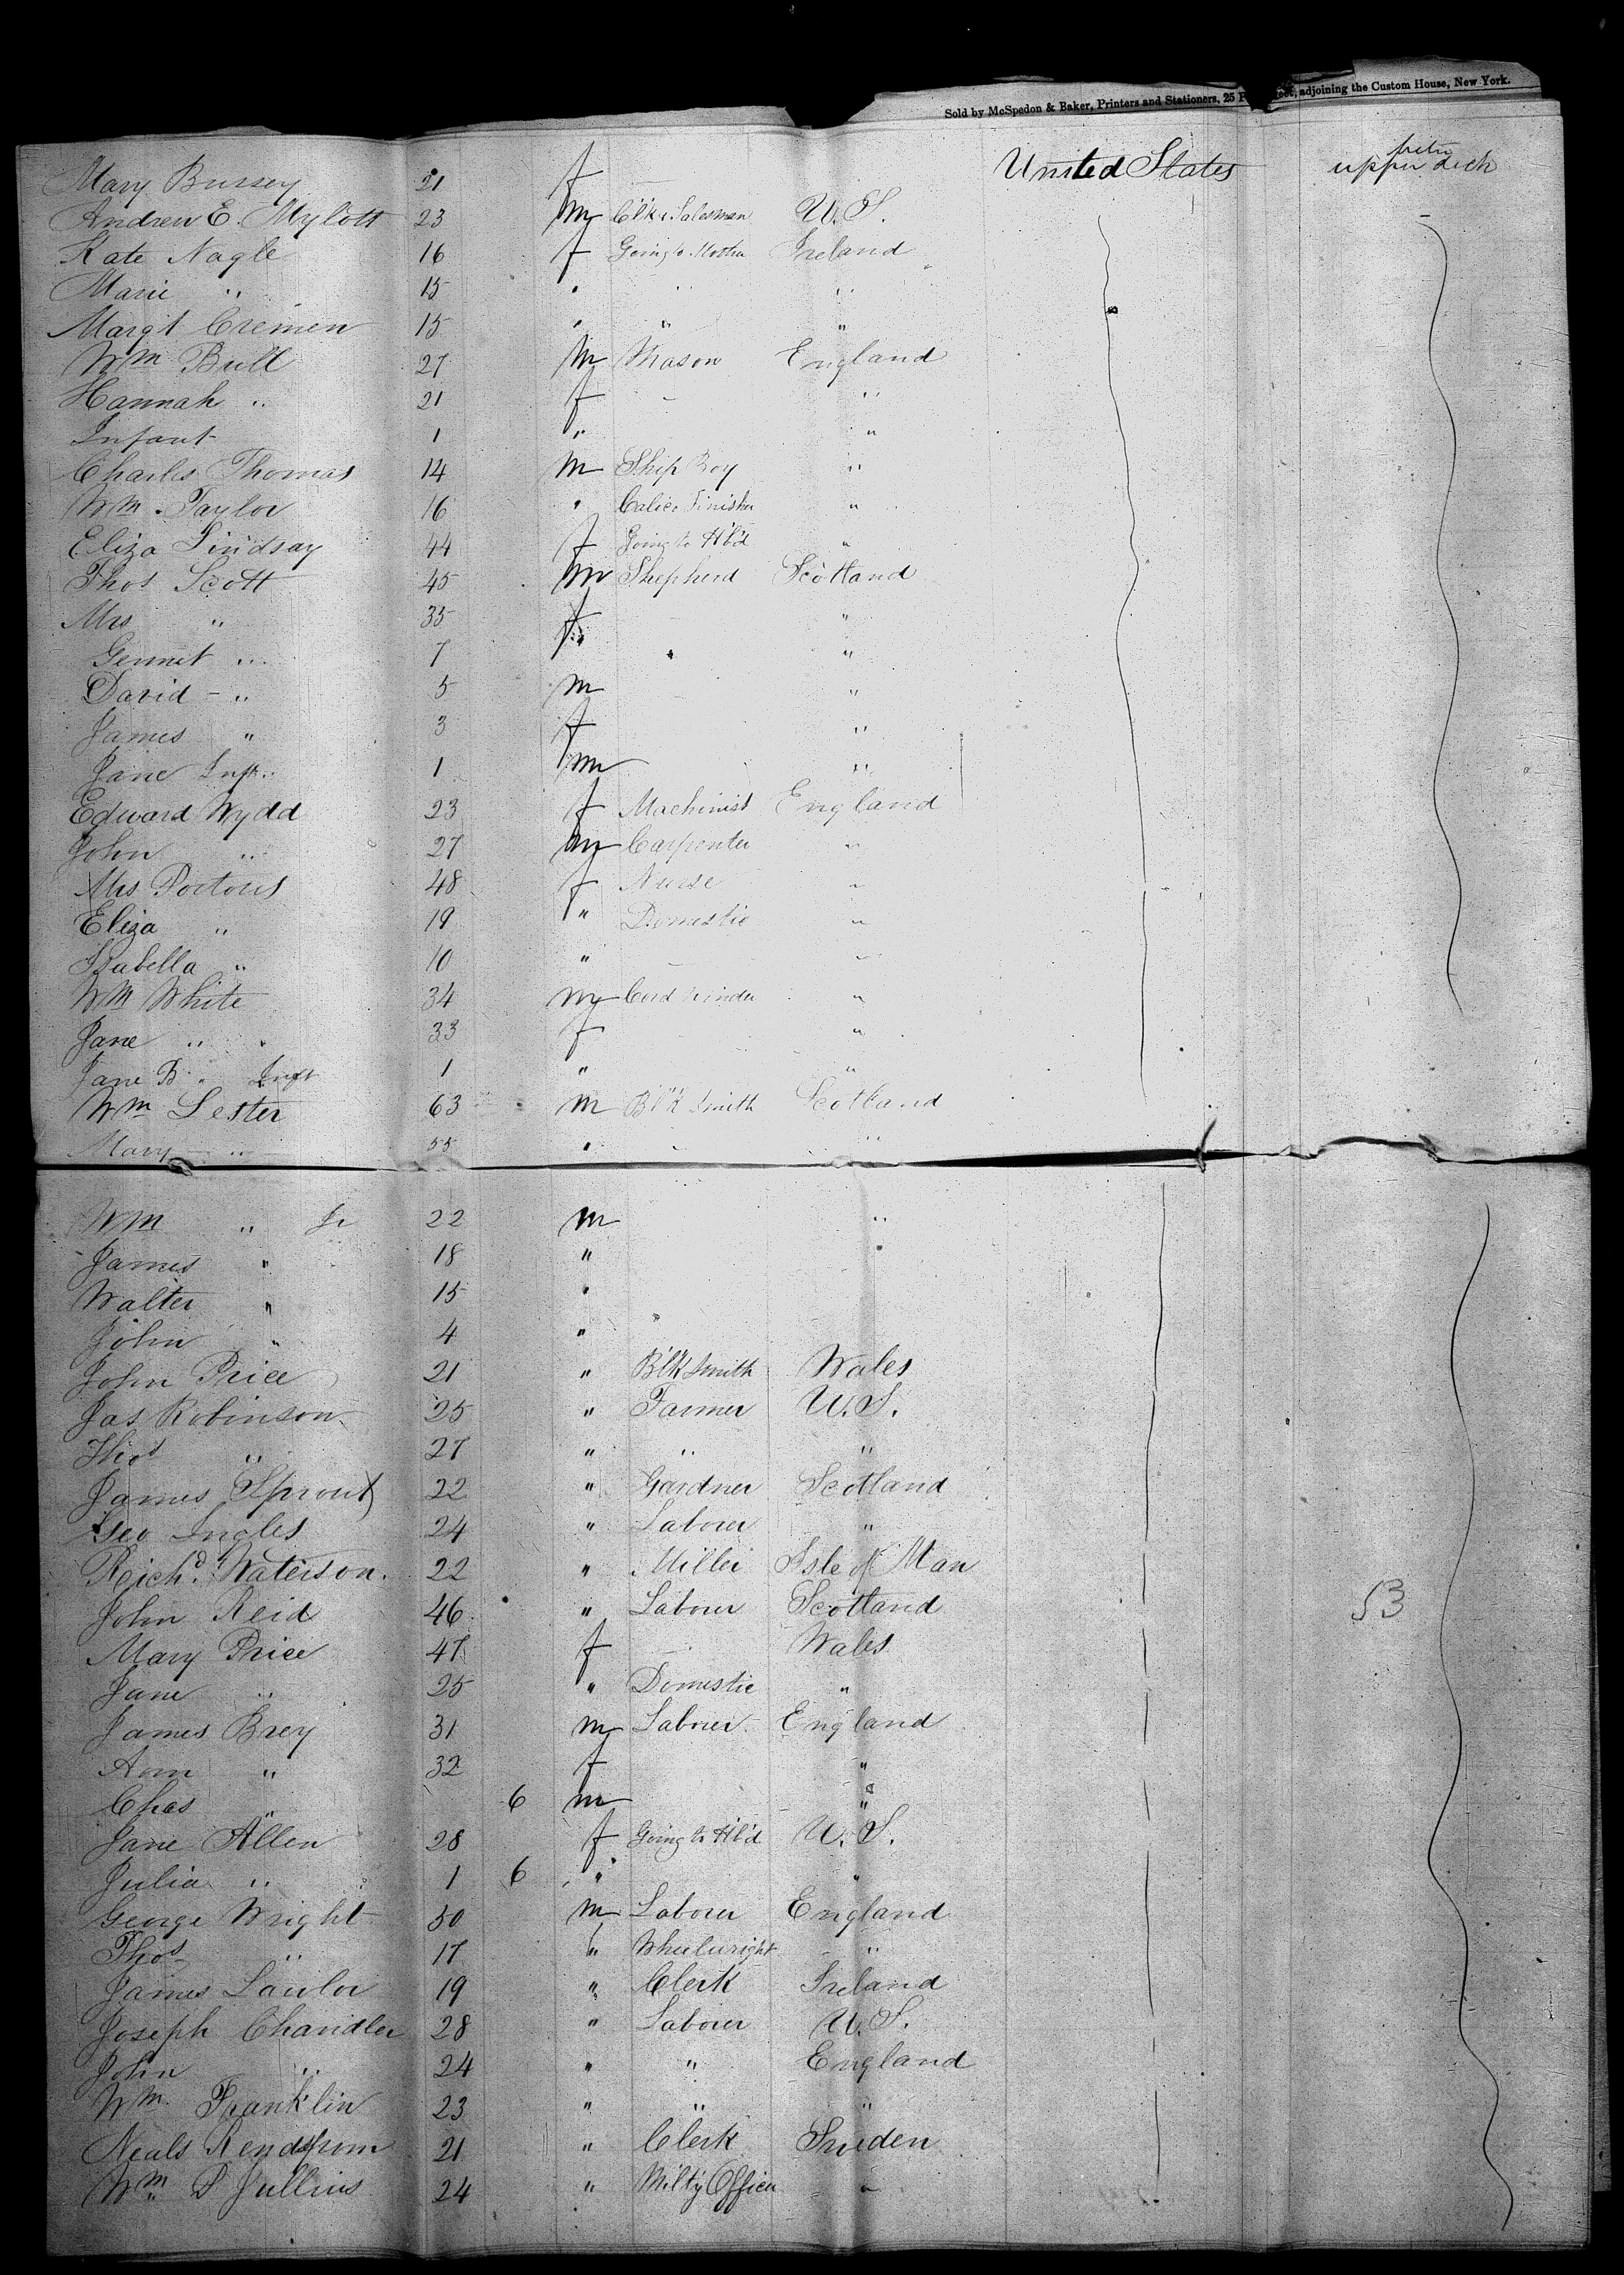 Sold by McSpedon & Baker, Printers and Stationers, 25 adjoining the Custom House, New York.
United States upper deck
Mary Bussey 21 f
Andrew E. Mylott 23 m Cl'k & Salesman U.S.
Kate Nagle 16 f Going to Mother Ireland
Marie " 15 " " "
Margt Cremen 15 " " "
Wm Bull 27 m Mason England
Hannah " 21 f - "
Infant 1 " "
Charles Thomas 14 m Ship Boy "
Wm. Taylor 16 " Calico Finisher "
Eliza Lindsay 44 f Going to Hb'd "
Thos Scott 45 m Shepherd Scotland
Mrs " 35 f "
Gennet " 7 " "
David - " 5 m "
James " 3 f "
Jane Inft " 1 m "
Edward Wydd 23 f Machinist England
John " 27 m Carpenter "
Mrs Portous 48 f Nurse "
Eliza " 19 " Domestic "
Isabella " 10 " - "
Wm White 34 m "
Jane " 33 f "
Jane B " Inft 1 " "
Wm Lester 63 m Bl'k Smith Scotland
Mary " 55 " "
Wm " Jr 22 m "
James " 18 " "
Walter " 15 "
John " 4 "
John Price 21 " Bl'k Smith Wales
Jas Robinson 25 " Farmer U.S.
Thos " 27 " " "
James Sprout 22 " Gardner Scotland
Geo Ingles 24 " Laborer "
Richd. Waterson. 22 " Miller Isle of Man
John Reid 46 " Laborer Scotland 53
Mary Price 47 f Wales
Jane " 25 " Domestic "
James Brey 31 m Laborer England
Ann " 32 f "
Chas " 6 m "
Jane Allen 28 f Going to Hb'd U.S.
Julia " 1 6 " "
George Wright 50 m Laborer England
Thos " 17 " Wheelwright "
James Lawlor 19 " Clerk Ireland
Joseph Chandler 28 " Laborer U.S.
John " 24 " " England
Wm. Franklin 23 " " "
Neals 21 " Clerk Sweden
Wm P Jullius 24 " Milty Officer "